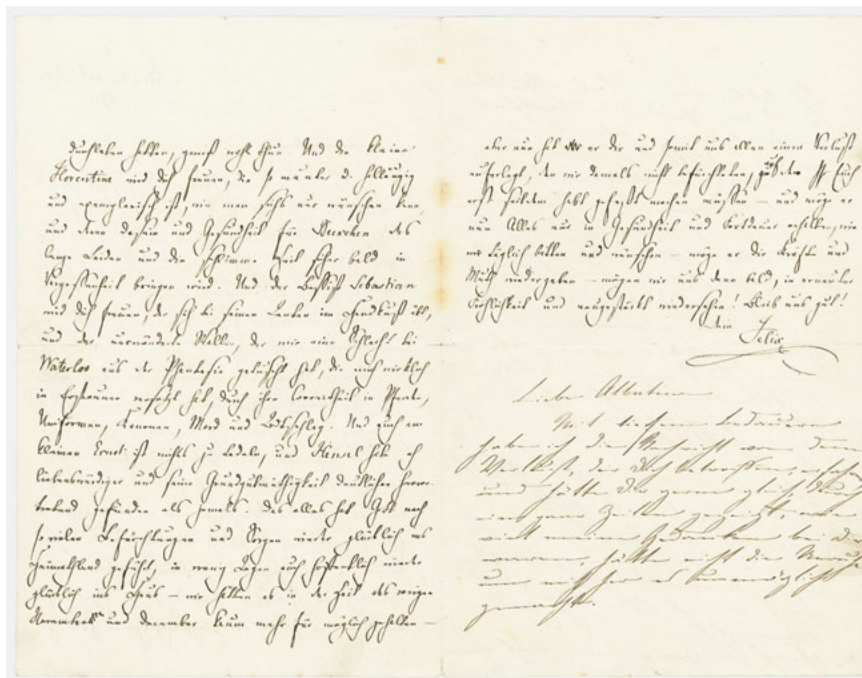 durchleben hatten, gewiß wohl thun. Und die kleine
Florentine wird dich freuen, die so munter u. helläugig
und exemplarisch ist, wie man sichs nur wünschen kann,
und deren Dasein und Gesundheit für das
lange Leiden und die schlimme Zeit sicher bald in
Vergessenheit bringen wird. Und der Sebastian
wird dich freuen, der sich bei seinem Lanken im übt,
und der verwundete Walter, der mir eine Schlacht bei
Waterloo aus der Phantasie getuscht hat, die mich wirklich
in Erstaunen versetzt hat, durch ihre Correctheit in Pferden,
Uniformen, Kanonen, Mord und Todtschlag. Und auch am
kleinen Ernst ist nichts zu tadeln, und Hensel hab ich
liebenswürdiger und seine Grundgutmüthigkeit deutlicher hervor
tretend gefunden als jemals. Das alles hat Gott nach
so vielen Befürchtungen und Sorgen wieder glücklich ins
Heimathland geführt, in wenig Tagen auch hoffentlich wieder
glücklich ins Haus – wir hätten es in der Zeit des vorigen
Novembers und December kaum mehr für möglich gehalten –
aber nun hat er dir und somit uns allen einen Verlust
auferlegt, den wir damals nicht befürchteten, auf den Ihr Euch
erst seitdem habt gefaßt machen müssen – und möge er
nun Alles nur in Gesundheit und Fortdauer erhalten, wie
wir täglich bitten und wünschen – möge er dir Kräfte und
Muth wiedergeben – mögen wir uns dann bald, in erneuter
Fröhlichkeit und neugestärkt wiedersehen! Bleib uns gut!
Dein
Felix
Liebe Albertine
Mit tiefem Bedauern
habe ich die Nachricht von dem
Verlust, der Dich betroffen, erfahren
und hätte Dir gerne gleich durch
ein paar Zeilen gezeigt, wie
viel meine Gedanken bei Dir
waren, hätte nicht die Unruhe
um mich her es unmöglich
gemacht.